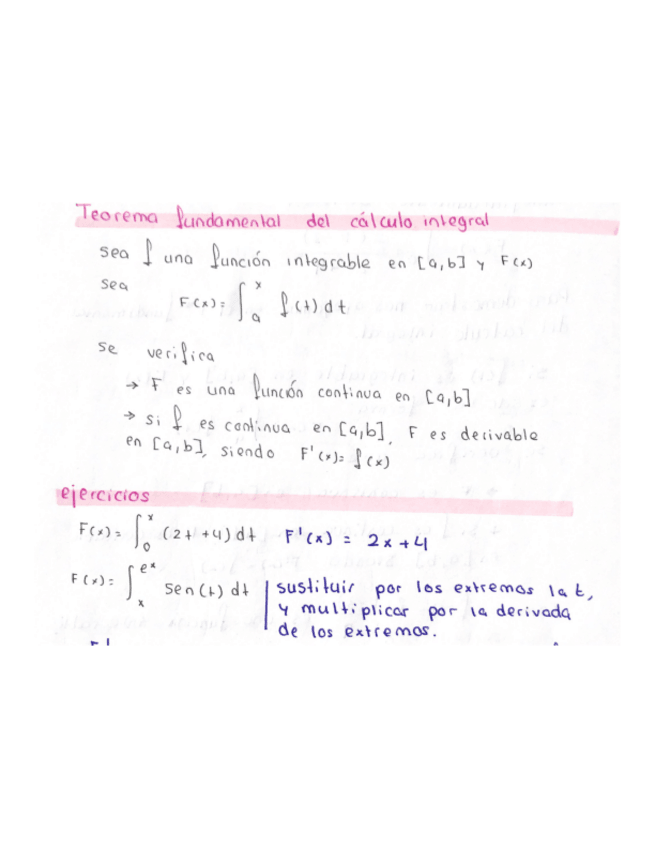 Teorema fundamental del cálculo integral
sea f una función integrable en [a,b] y F(x)
sea
F(x)= ∫ₐˣ f(t) dt
se verifica
→ F es una función continua en [a,b]
→ si f es continua en [a,b], F es derivable
en [a,b], siendo F'(x)= f(x)
ejercicios
F(x)= ∫₀ˣ (2t +4) dt F'(x) = 2x +4
F(x)= ∫ₓ^(eˣ) sen(t) dt | sustituir por los extremos la t,
y multiplicar por la derivada
de los extremos.